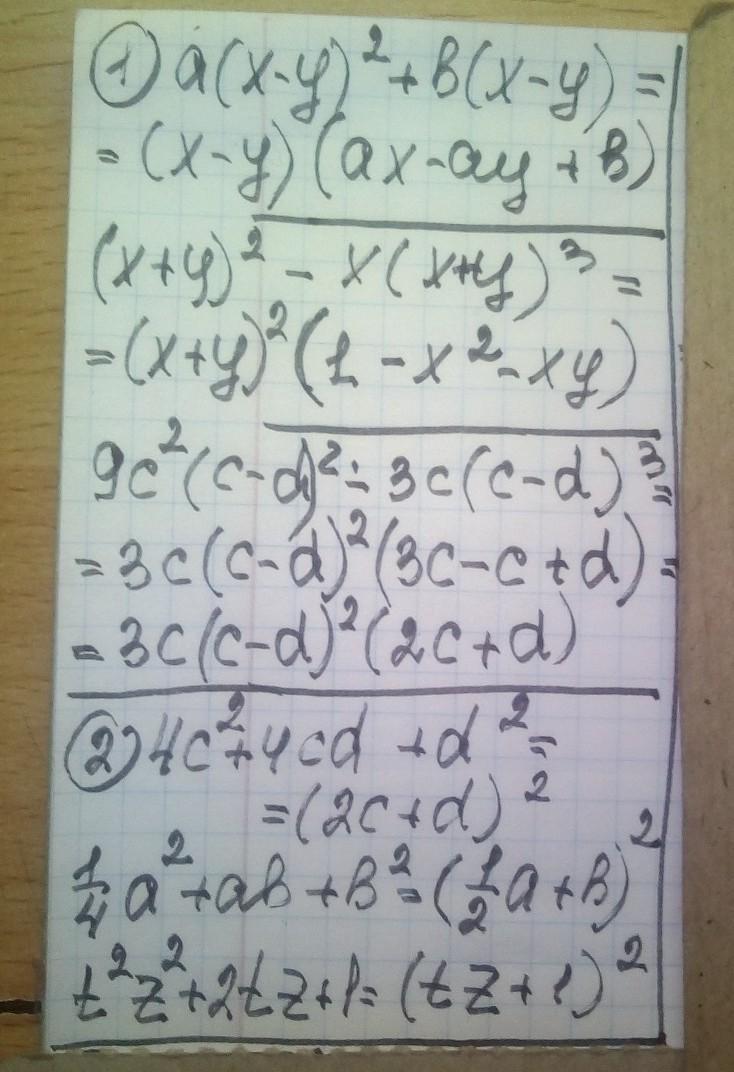 ① a(x-y)²+b(x-y)=
=(x-y)(ax-ay+b)
(x+y)²-x(x+y)³=
=(x+y)²(1-x²-xy)
9c²(c-d)²-3c(c-d)³=
=3c(c-d)²(3c-c+d)=
=3c(c-d)²(2c+d)
② 4c²+4cd+d²=
=(2c+d)²
¼a²+ab+b²=(½a+b)²
t²z²+2tz+1=(tz+1)²